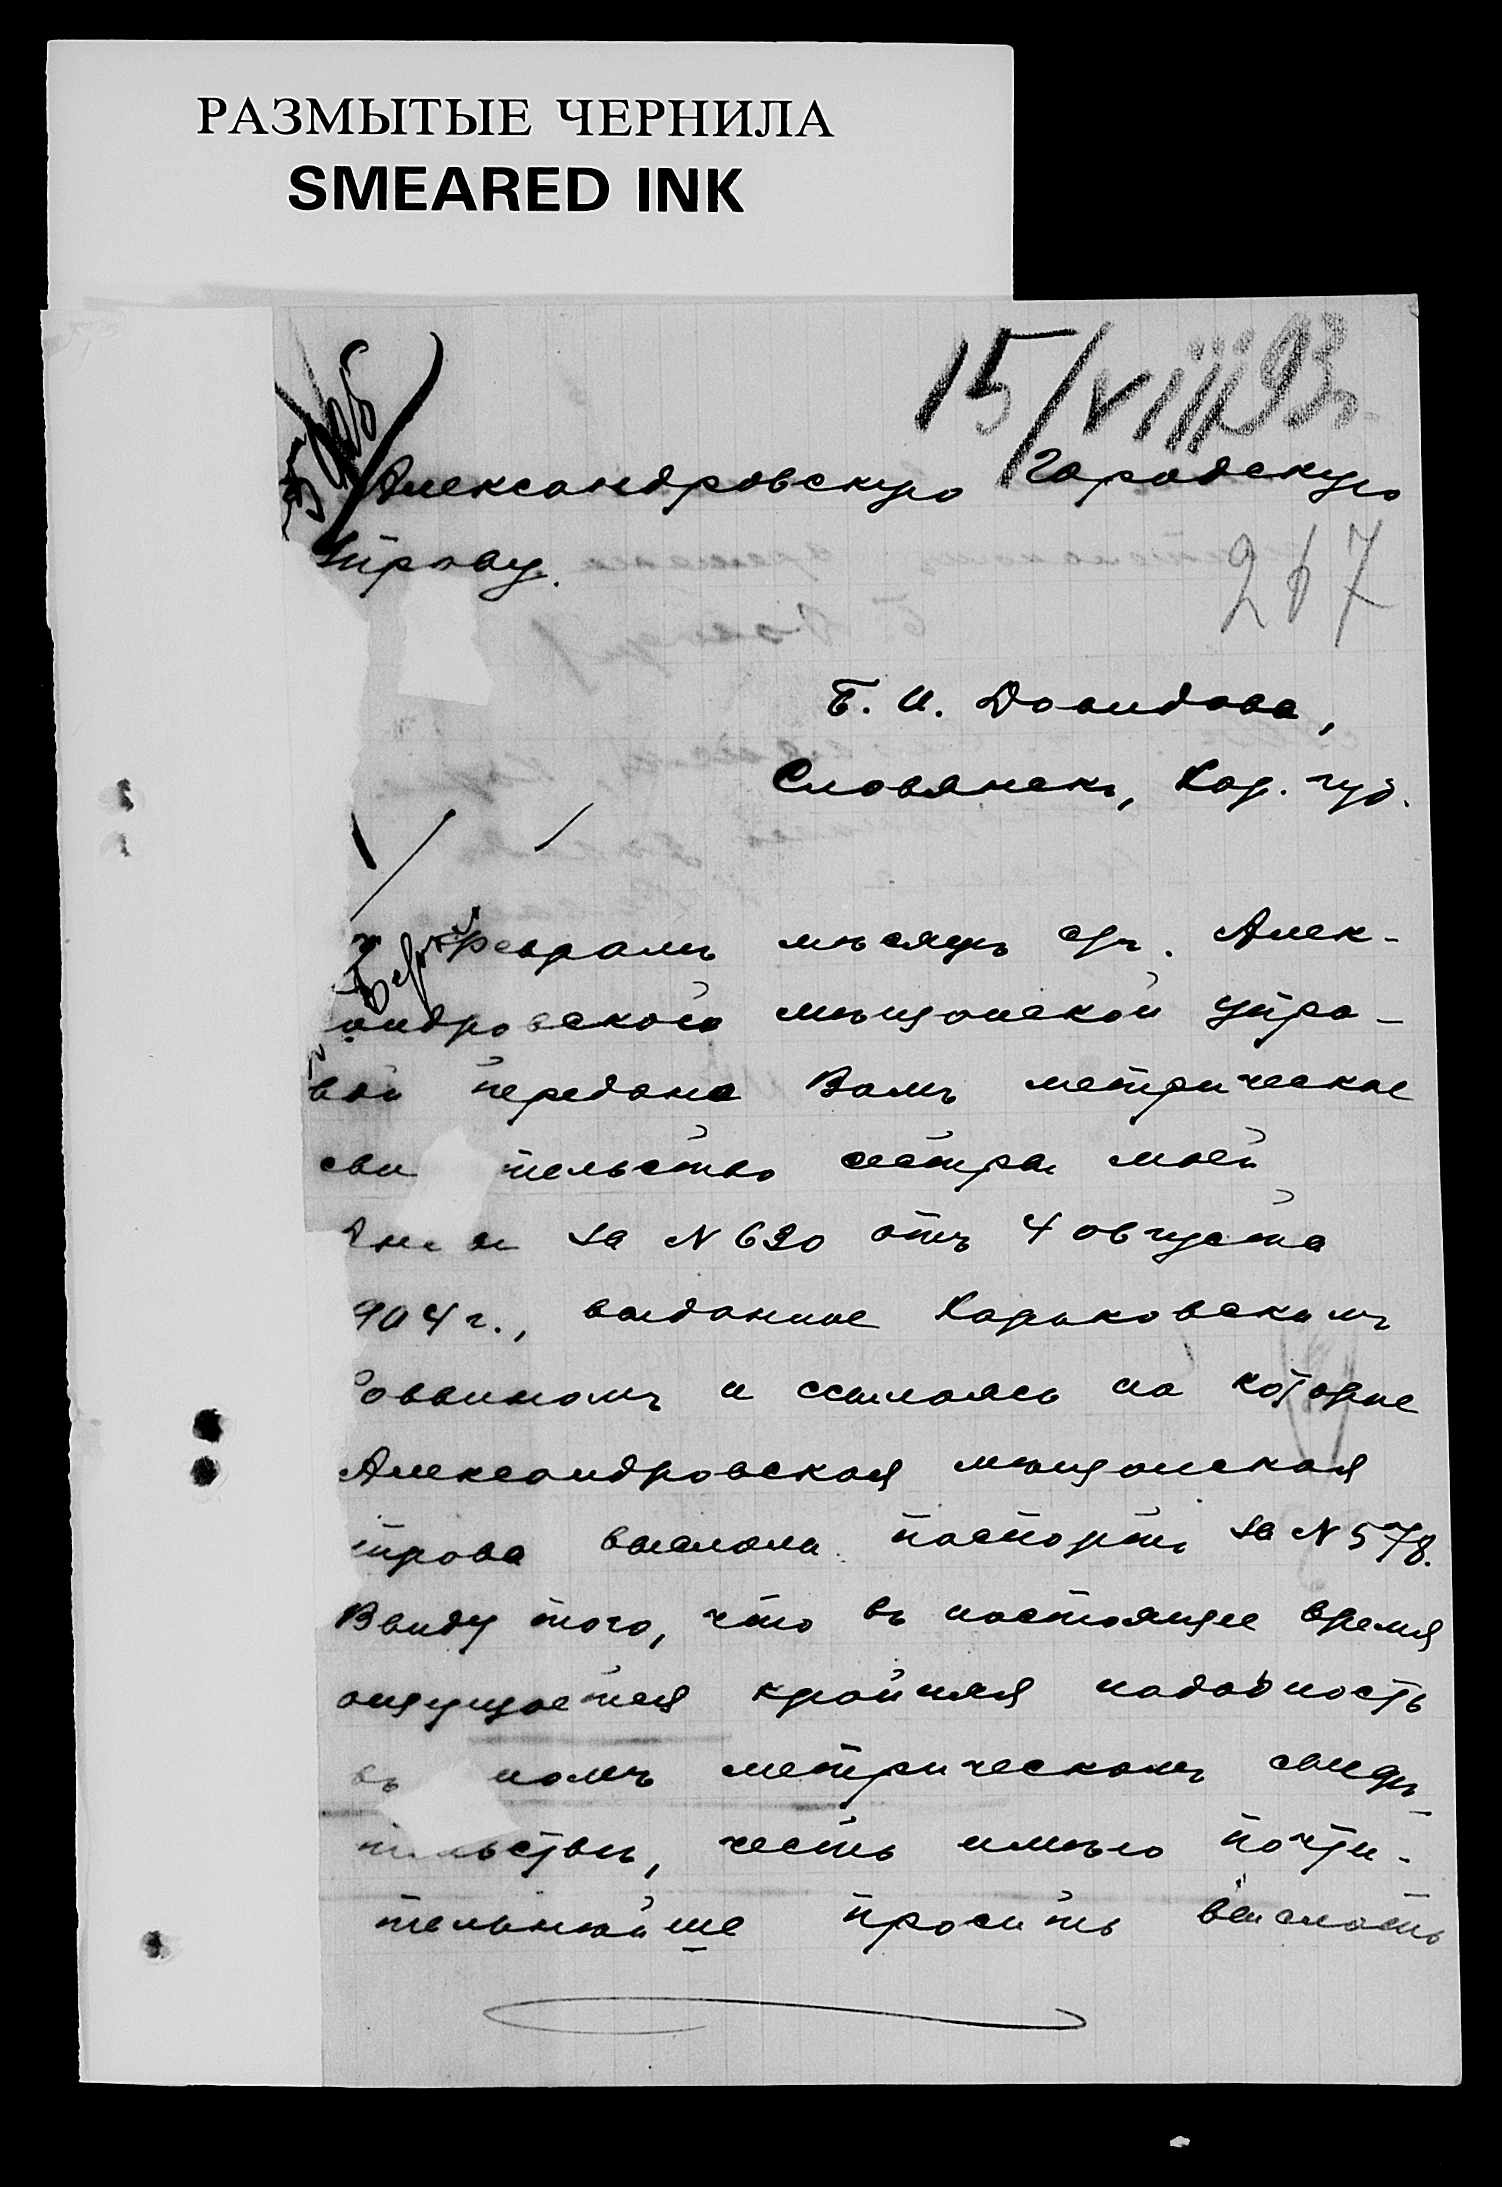 РАЗМЫТЫЕ ЧЕРНИЛА
SMEARED INK
15/VIII 93
Александровскую Городскую
Управу.
267
Б. И. Давидова,
Славянскъ, Хар. губ.
Февралѣ мѣсяцѣ с/г. Алек-
андровской мѣщанской упра-
вой передано Вамъ метрическое
сви тельство сестры моей
за N 620 отъ 4 августа
904 г., выданное Харьковскимъ
раввиномъ и ссылаясь на которое
Александровская мѣщанская
управа выслала паспортъ за N 578.
Ввиду того, что въ настоящее время
ощущается крайняя надобность
въ номъ метрическомъ свидѣ-
тельствѣ, честь имѣю почти-
тельнѣйше просить выслать